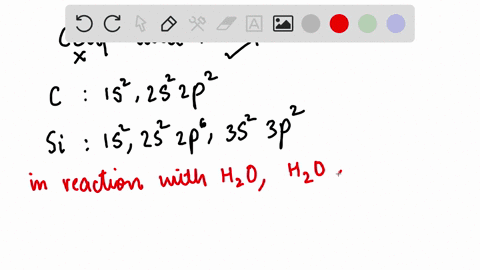 C : 1s², 2s² 2p²
Si : 1s², 2s² 2p⁶, 3s² 3p²
in reaction with H₂O, H₂O